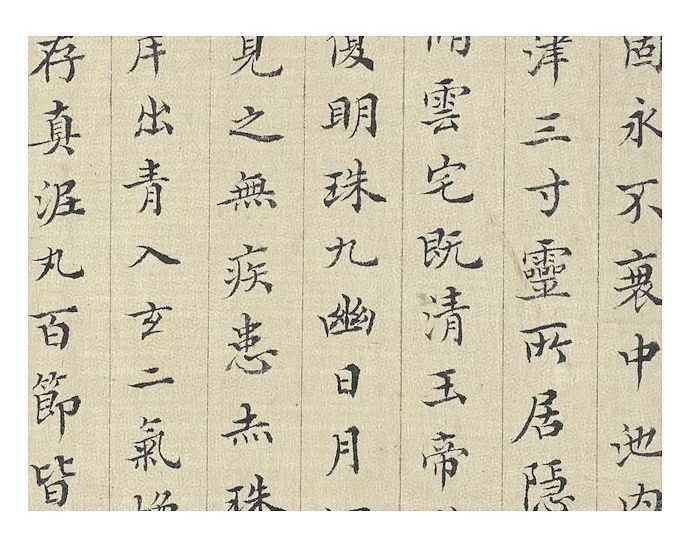 固永不衰中池内
津三寸靈所居隱
雲宅既清玉帝
明珠九幽日月
見之無疾患赤珠
出青入玄二氣
存真泥丸百節皆